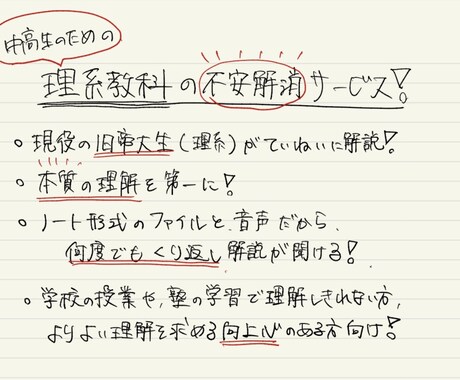 中高生のための
理系教科の不安解消サービス!
○ 現役の旧帝大生(理系)がていねいに解説!
○ 本質の理解を第一に!
○ ノート形式のファイルと、音声だから、
何度でもくり返し解説が聞ける!
○ 学校の授業や、塾の学習で理解しきれない方、
よりよい理解を求める向上心のある方向け!